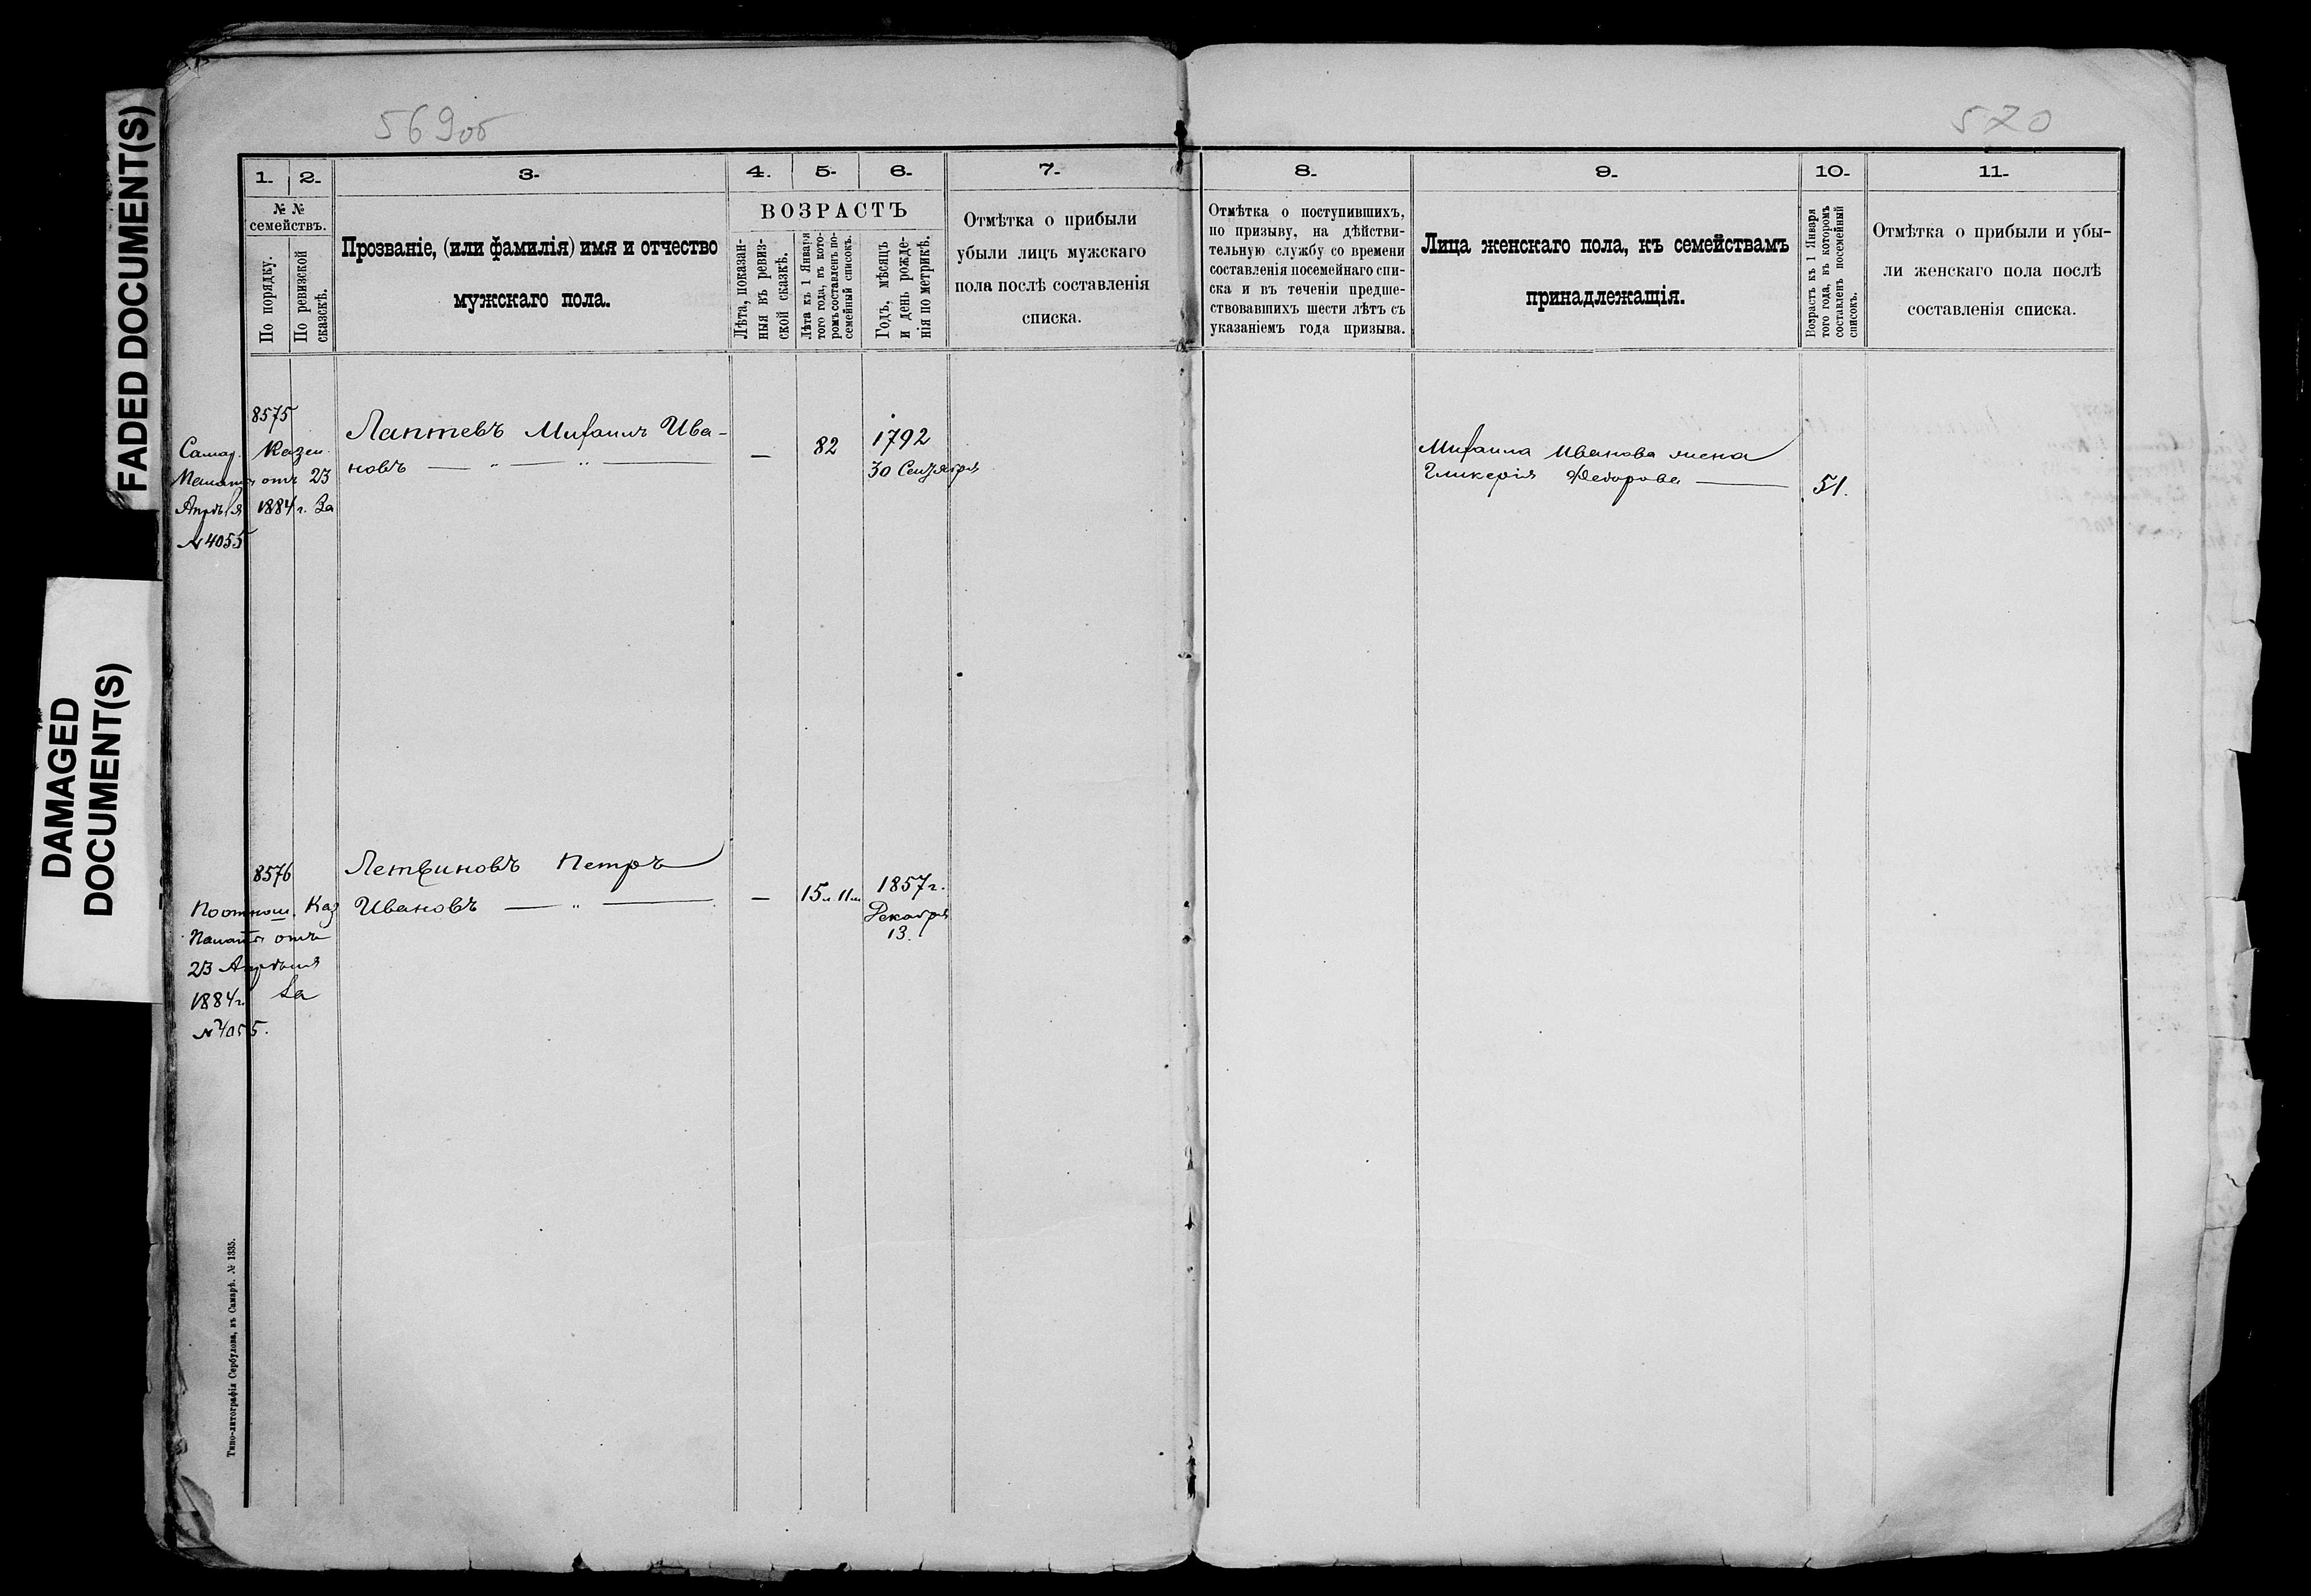 FADED DOCUMENT(S)
DAMAGED
DOCUMENT(S)
569об
1.
2.
3.
4.
5.
6.
7.
№ №
семействъ.
По порядку.
По ревизской
сказскѣ.
Прозваніе, (или фамилія) имя и отчество
мужскаго пола.
ВОЗРАСТЪ
Лѣта, показан-
ныя въ ревиз-
ской сказкѣ.
Лѣта къ 1 Января
того года, въ кото-
ромъ составленъ по-
семейный списокъ.
Годъ, мѣсяцъ
и день рожде-
нія по метрикѣ.
Отмѣтка о прибыли
убыли лицъ мужскаго
пола послѣ составленія
списка.
8575
Самар. Казен.
Палаты отъ 23
Апрѣля 1884 г. За
№ 4055
Лаптевъ Михаилъ Ива-
новъ — " — " —
—
82
1792
30 Сентября
8576
По отнош. Каз
Палаты отъ
23 Апрѣля
1884 г. За
№ 4055.
Петръ
Ивановъ — " —
—
15 л 11 м
1857 г.
Декабря
13.
Типо-литографія Сербулова, въ Самарѣ. № 1335.
570
8.
9.
10.
11.
Отмѣтка о поступившихъ,
по призыву, на дѣйстви-
тельную службу со времени
составленія посемейнаго спи-
ска и въ теченіи предше-
ствовавшихъ шести лѣтъ съ
указаніемъ года призыва.
Лица женскаго пола, къ семействамъ
принадлежащія.
Возрастъ къ 1 Января
того года, въ которомъ
составленъ посемейный
списокъ.
Отмѣтка о прибыли и убы-
ли женскаго пола послѣ
составленія списка.
Михаила Иванова жена
Гликерія Федорова —
51.